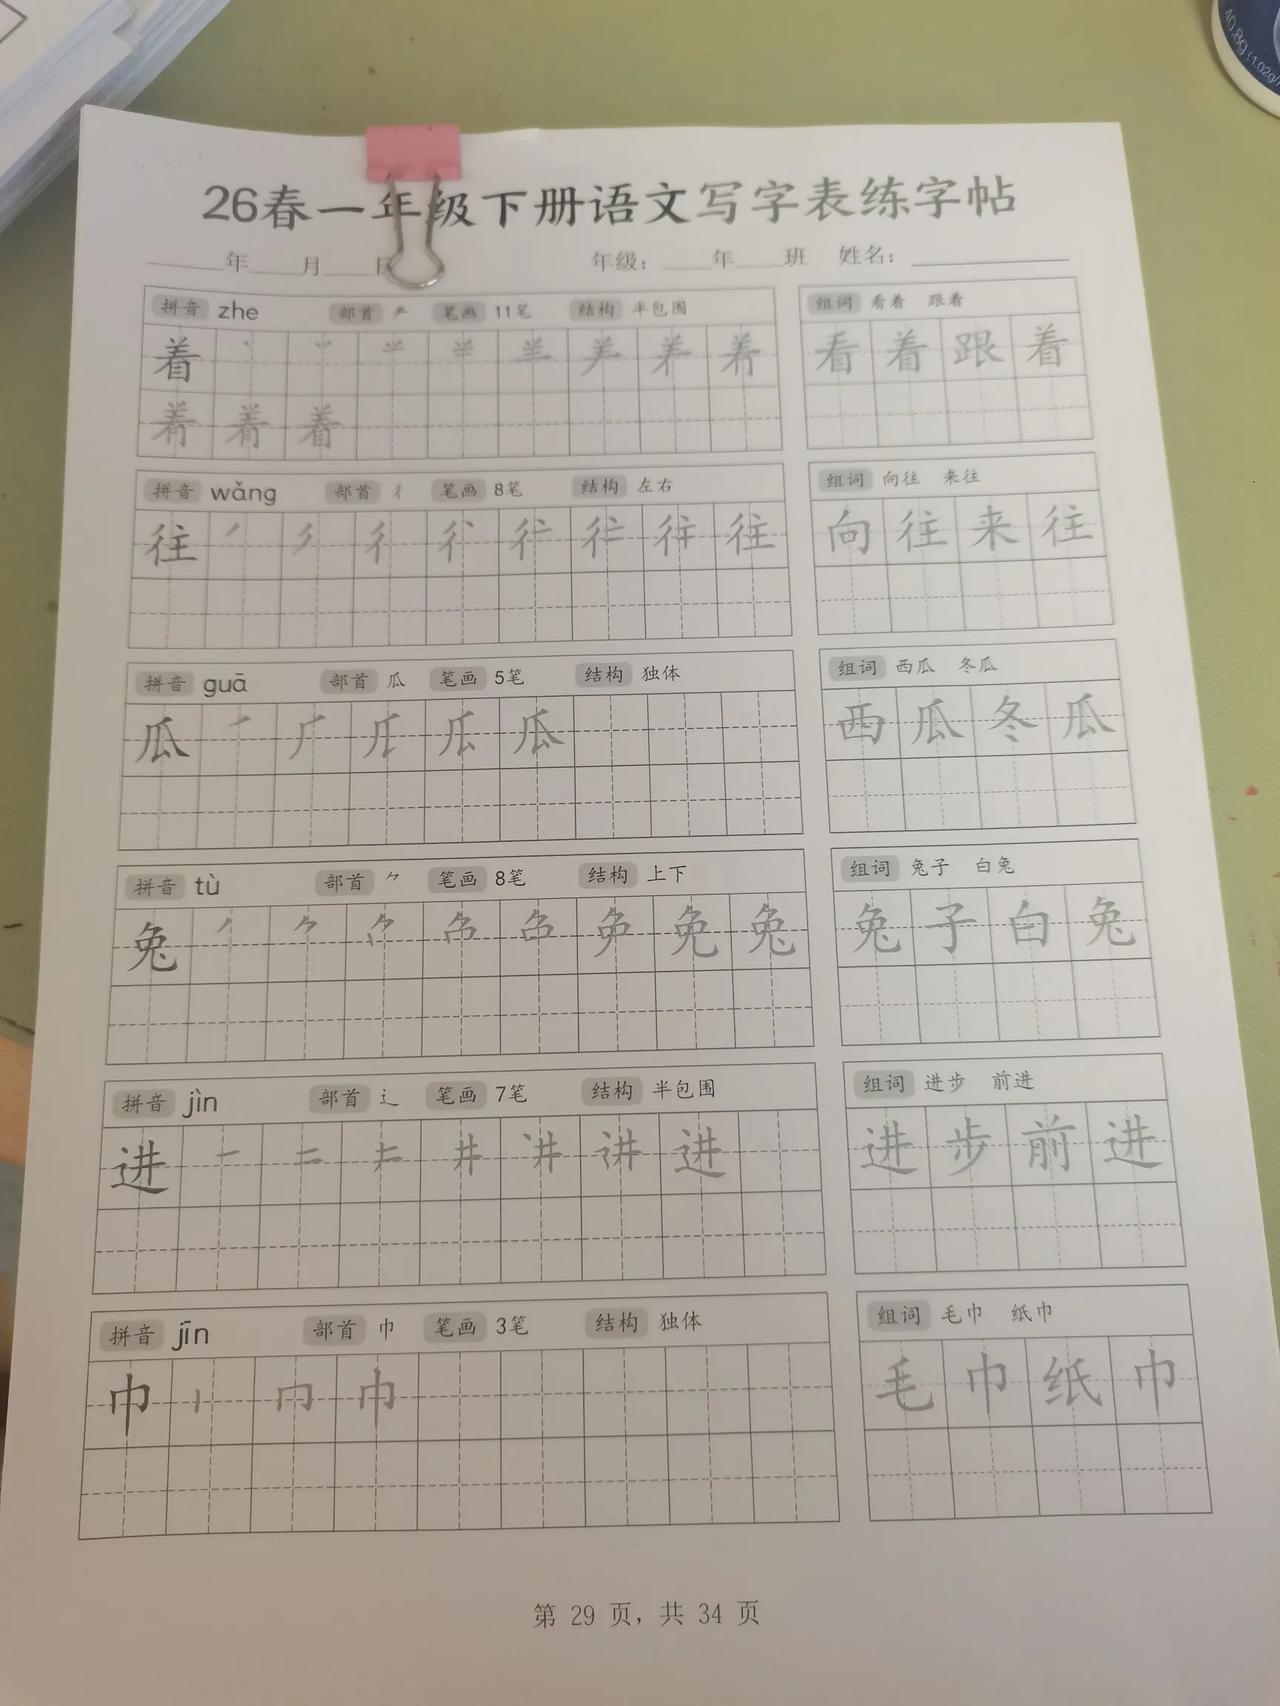 26春一年级下册语文写字表练字帖
年 月 日 年级： 年 班 姓名：
拼音 zhe 部首 笔画 11笔 结构 半包围
着
着
组词 看着 跟着
看着跟着
拼音 wǎng 部首 彳 笔画 8笔 结构 左右
往 彳 往
组词 向往 来往
向往来往
拼音 guā 部首 瓜 笔画 5笔 结构 独体
瓜 瓜
组词 西瓜 冬瓜
西瓜冬瓜
拼音 tù 部首 ⺈ 笔画 8笔 结构 上下
兔 免 兔
组词 兔子 白兔
兔子白兔
拼音 jìn 部首 辶 笔画 7笔 结构 半包围
进 一 二 井 进
组词 进步 前进
进步前进
拼音 jīn 部首 巾 笔画 3笔 结构 独体
巾 丨 冂 巾
组词 毛巾 纸巾
毛巾纸巾
第 29 页，共 34 页
40.8g (1.02g/